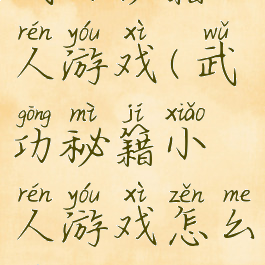 rén yóu xì wǔ
人游戏(武
gōng mì jí xiǎo
功秘籍小
rén yóu xì zěn me
人游戏怎么